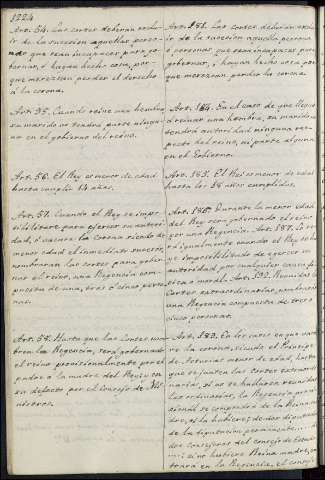 1224
Art. 54. Las cortes deberán exclu-
ir de la sucesion aquellas perso-
nas que sean incapaces para go-
bernar, ó hayan hecho cosa, por-
que merezcan perder el derecho
á la corona.
Art. 55. Cuando reine una hembra,
su marido no tendrá parte ningu-
na en el gobierno del reino.
Art. 56. El Rey es menor de edad
hasta cumplir 14 años.
Art. 57. Cuando el Rey se impo-
sibilitare para ejercer su autori-
dad, ó vacare la corona siendo de
menor edad el inmediato sucesor,
nombrarán las cortes para gober-
nar el reino, una Regencia com-
puesta de una, tres ó cinco perso-
nas.
Art. 58. Hasta que las Cortes nom-
bren la Regencia, será gobernado
el reino provisionalmente por el
padre ó la madre del Rey; y en
su defecto por el Consejo de Mi-
nistros.
Art. 181. Las Cortes deberán exclu-
ir de la sucesion aquella persona
ó personas que sean incapaces para
gobernar, ó hayan hecho cosa por
que merezcan perder la corona.
Art. 184. En el caso de que llegue
á reinar una hembra, su marido no
tendrá autoridad ninguna res-
pecto del reino, ni parte alguna
en el Gobierno.
Art. 185. El Rey es menor de edad
hasta los 18 años cumplidos.
Art. 186. Durante la menor edad
del Rey será gobernado el reino
por una Regencia. Art. 187. Lo se-
rá igualmente cuando el Rey se ha-
lle imposibilitado de ejercer su
autoridad por cualquier causa fí-
sica ó moral. Art. 192. Reunidas las
Cortes extraordinarias, nombrarán
una Regencia compuesta de tres ó
cinco personas.
Art. 189. En los casos en que vaca-
re la corona, siendo el Príncipe
de Asturias menor de edad, hasta
que se junten las Cortes extraordi-
narias, si no se hallaren reunidas
las ordinarias, la Regencia provi-
sional se compondrá de la Reina ma-
dre, si la hubiere; de dos diputados
de la diputacion permanente...: de
dos consejeros del consejo de Estado
...: si no hubiere Reina madre, en-
trará en la Regencia, el consejero